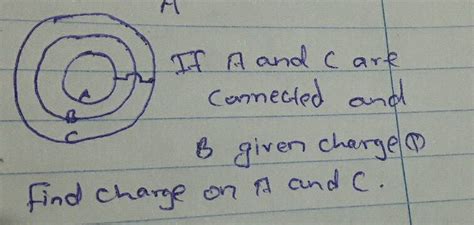 A
A
B
C
If A and C are
Connected and
B given charge
find charge on A and C.